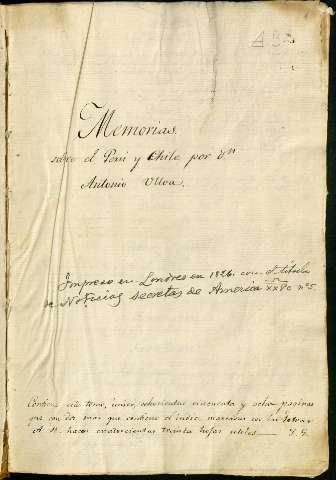 Memorias
sobre el Perú y Chile por Dn
Antonio Ulloa.
Impreso en Londres en 1826. con el título
de Noticias secretas de America XX80 nº5.
Contiene este tomo, único, ochocientas cincuenta y ocho paginas
que con dos mas que contiene el indice marcadas con las letras
A B. hacen cuatrocientas treinta hojas utiles